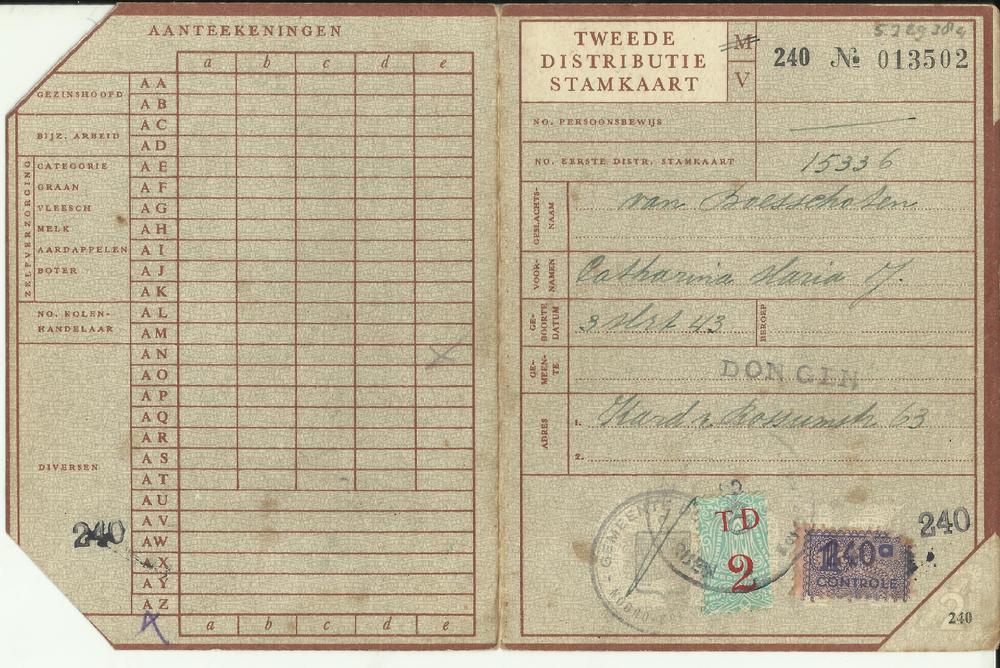 AANTEEKENINGEN
a b c d e
GEZINSHOOFD
A A
A B
BIJZ. ARBEID
A C
A D
ZELFVERZORGING
CATEGORIE A E
GRAAN A F
VLEESCH A G
MELK A H
AARDAPPELEN A I
BOTER A J
A K
NO. KOLEN-
HANDELAAR
A L
A M
A N
A O
A P
A Q
A R
DIVERSEN
A S
A T
A U
A V
240
A W
A X
A Y
A Z
a b c d e
TWEEDE
DISTRIBUTIE
STAMKAART
M
V
240 No 013502
NO. PERSOONSBEWIJS
NO. EERSTE DISTR. STAMKAART 15336
GESLACHTS-
NAAM
van Boesschoten
VOOR-
NAMEN
Catharina Maria J.
GE-
BOORTE
DATUM
3 Mrt 43
BEROEP
GE-
MEEN-
TE
DONGEN
ADRES
1. Kard v Rossumstr 63
2.
GEMEENTE
TD
2
240a
CONTROLE
240
240